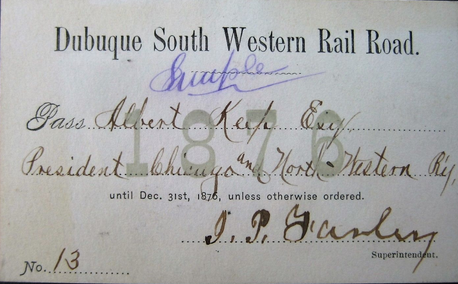 Dubuque South Western Rail Road.
Sample
Pass Albert Keep Esq.
1876
President Chicago and North Western R'y,
until Dec. 31st, 1876, unless otherwise ordered.
J. P. Farley
Superintendent.
No. 13